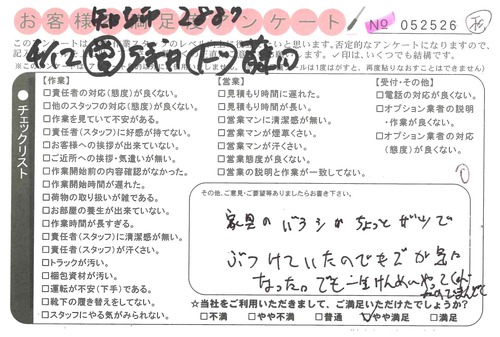 お客様満足度アンケート
№ 052526
【作業】
□責任者の対応(態度)が良くない。
□他のスタッフの対応(態度)が良くない。
□作業を見ていて不安がある。
□責任者(スタッフ)に好感が持てない。
□お客様への挨拶が出来ていない。
□ご近所への挨拶・気遣いが無い。
□作業開始前の内容確認がなかった。
□作業開始時間が遅れた。
□荷物の取り扱いが雑である。
□お部屋の養生が出来ていない。
□作業時間が長すぎる。
□責任者(スタッフ)に清潔感が無い。
□責任者(スタッフ)が汗くさい。
□トラックが汚い。
□梱包資材が汚い。
□運転が不安(下手)である。
□靴下の履き替えをしてない。
□スタッフにやる気がみられない。
【営業】
□見積もり時間に遅れた。
□見積もり時間が長い。
□営業マンに清潔感が無い。
□営業マンが煙草くさい。
□営業マンが汗くさい。
□営業態度が良くない。
□営業の説明と作業が一致してない。
【受付・その他】
□電話の対応が良くない。
□オプション業者の説明
・作業が良くない。
□オプション業者の対応
(態度)が良くない。
チェックリスト
その他、ご意見・ご要望等ありましたらお書き下さい。
家具のバラシがちょっと
ぶつけていたのでキズが気に
なった。でも一生けんめいやってくれ
☆当社をご利用いただきまして、ご満足いただけたでしょうか?
□不満 □やや不満 □普通 ☑やや満足 □満足